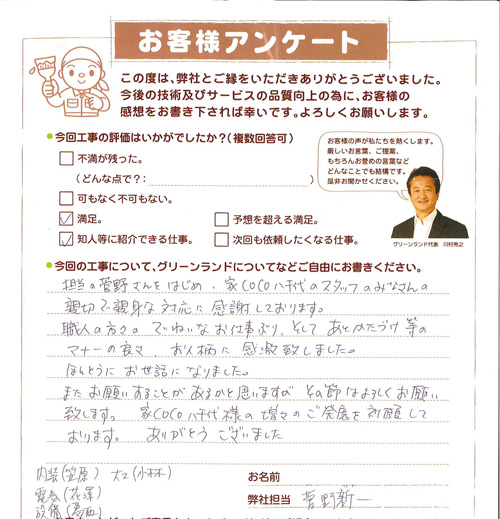 お客様アンケート
この度は、弊社とご縁をいただきありがとうございました。
今後の技術及びサービスの品質向上の為に、お客様の
感想をお書き下されば幸いです。よろしくお願いします。
●今回工事の評価はいかがでしたか？（複数回答可）
不満が残った。
（どんな点で？：）
可もなく不可もない。
満足。
予想を超える満足。
知人等に紹介できる仕事。
次回も依頼したくなる仕事。
お客様の声が私たちを熱くします。
厳しいお言葉、ご提案、
もちろんお誉めの言葉など
どんなことでも結構です。
是非お聞かせください。
グリーンランド代表 川村秀之
●今回の工事について、グリーンランドについてなどご自由にお書きください。
担当の菅野さんをはじめ、家COCO八千代のスタッフのみなさんの
親切で親身な対応に感謝しております。
職人の方々の ていねいなお仕事ぶり、そして あとかたづけ等の
マナーの良さ、お人柄に 感激致しました。
ほんとうに お世話になりました。
また お願いすることが あるかと思いますが その節はよろしくお願い
致します。 家COCO八千代様の増々のご発展を祈願して
おります。 ありがとう ございました
内装(笠原) 大工(小林)
電気(花澤)
設備
お名前
弊社担当 菅野新一